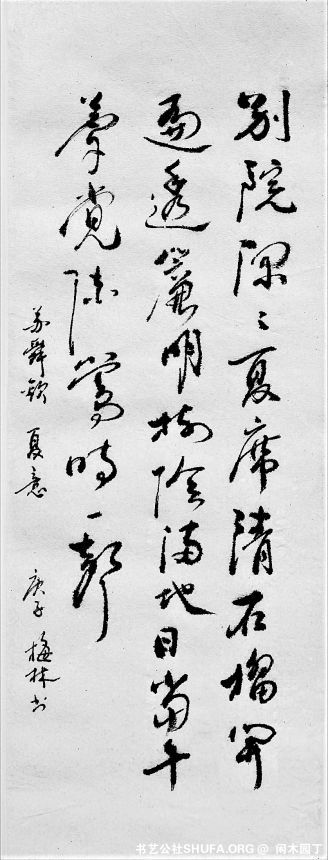 别院深〻夏席清石榴開
遍透簾明樹陰满地日當午
夢覺流鶯時一聲
苏舜钦 夏意 庚子 梅林书
书艺公社SHUFA.ORG @ 闲木园丁